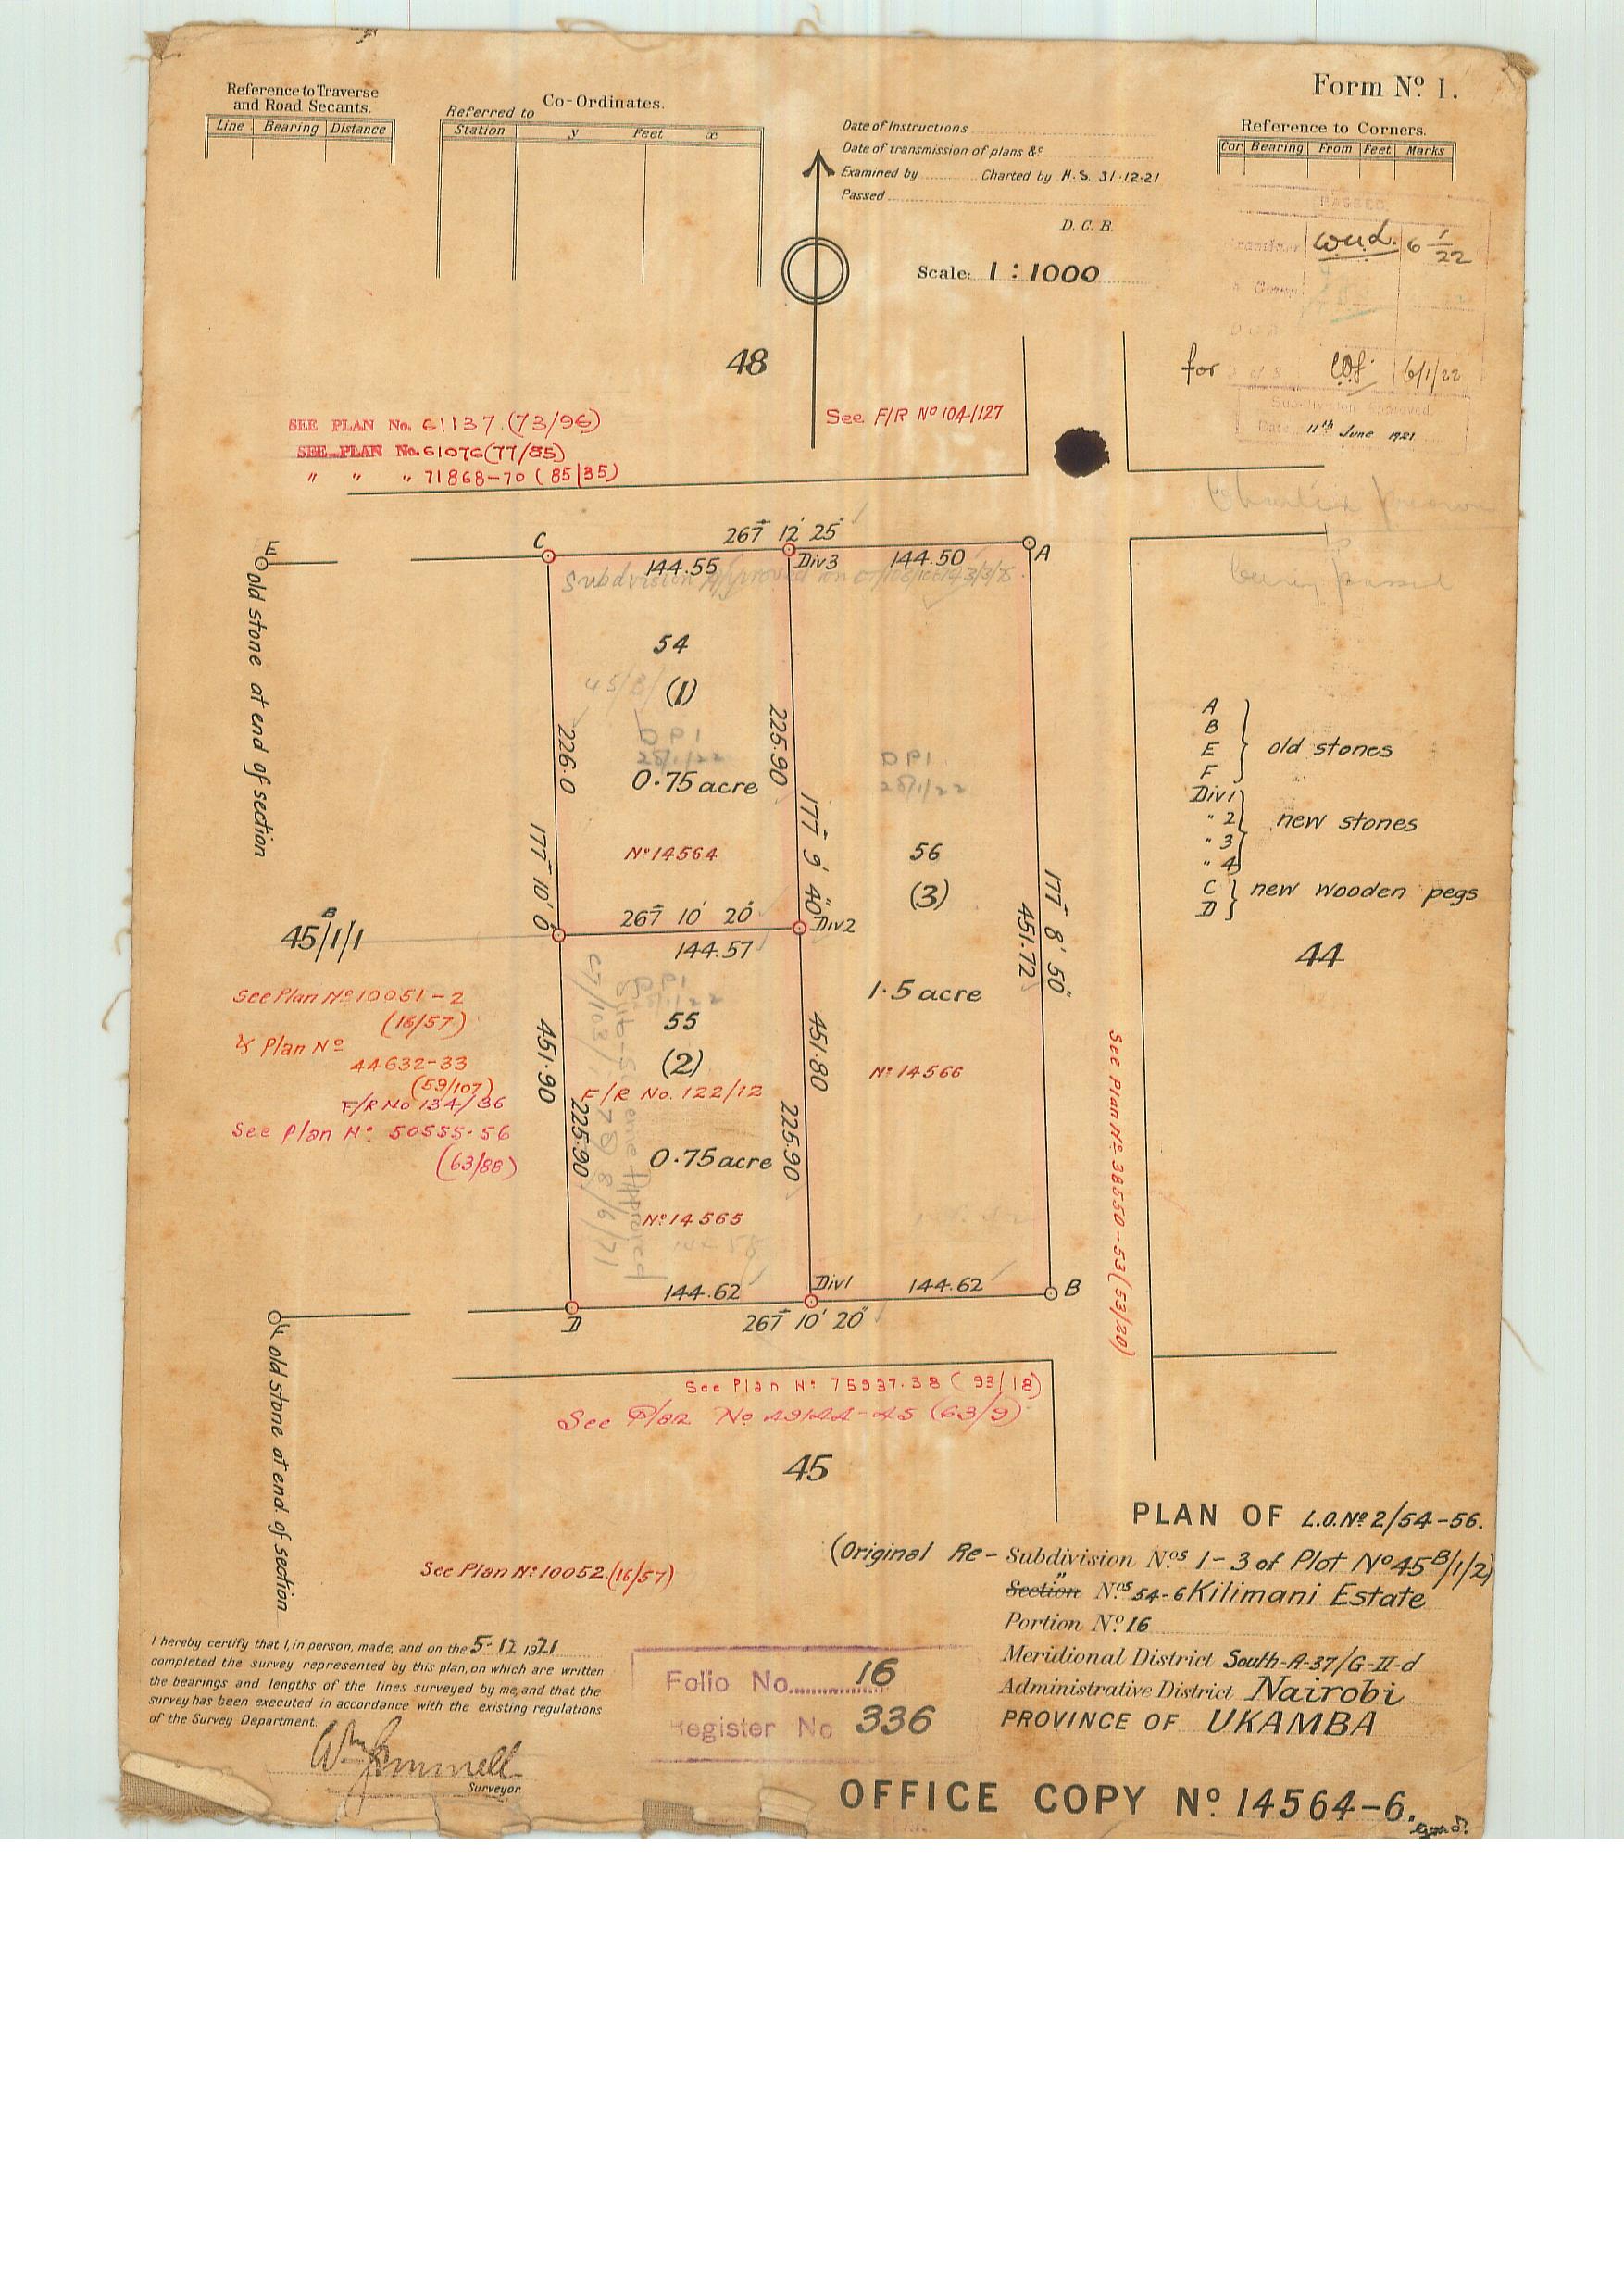 Form No. 1.
Reference to Traverse
and Road Secants.
Line Bearing Distance
Co-Ordinates.
Referred to
Station y Feet x
Date of Instructions
Date of transmission of plans &c
Examined by Charted by H.S. 31-12-21
Passed
D. C. B.
Scale: 1 : 1000
Reference to Corners.
Cor Bearing From Feet Marks
PASSED
6 1/22
for
6/1/22
Subdivision Approved.
Date 11th June 1921
48
SEE PLAN No. 61137 (73/96)
SEE PLAN No. 61076 (77/85)
" " " 71868-70 (85/35)
See F/R No 104/127
being passed
E
old stone at end of section
C
267° 12' 25"
144.55
Div3
144.50
A
Subdivision Approved
54
(1)
DPI
28/1/22
0.75 acre
No 14564
226.0
225.90
177° 10' 0"
177° 9' 40"
DPI
28/1/22
56
(3)
1.5 acre
No 14566
451.72
177° 8' 50"
267° 10' 20"
144.57
Div2
45B/1/1
See Plan No 10051-2
(16/57)
& Plan No
44632-33
(59/107)
F/R No 134/36
See Plan No 50555-56
(63/88)
451.90
225.90
DPI
55
(2)
F/R No. 122/12
0.75 acre
No 14565
Sub-Scheme Approved
225.90
451.80
See Plan No. 38550-53 (53/20)
A
B
E
F
old stones
Div1
" 2
" 3
" 4
new stones
C
D
new wooden pegs
44
144.62
Div1
144.62
B
D
267° 10' 20"
F
old stone at end of section
See Plan No 75937-38 (93/18)
See Plan No 49144-45 (63/9)
45
See Plan No 10052 (16/57)
PLAN OF L.O. No 2/54-56.
(Original Re-Subdivision Nos 1-3 of Plot No 45B/1/2)
Section Nos 54-6 Kilimani Estate
Portion No 16
Meridional District South-A-37/G-II-d
Administrative District Nairobi
PROVINCE OF UKAMBA
I hereby certify that I, in person, made, and on the 5-12 1921
completed the survey represented by this plan, on which are written
the bearings and lengths of the lines surveyed by me, and that the
survey has been executed in accordance with the existing regulations
of the Survey Department.
Surveyor
Folio No. 16
Register No 336
OFFICE COPY No. 14564-6.